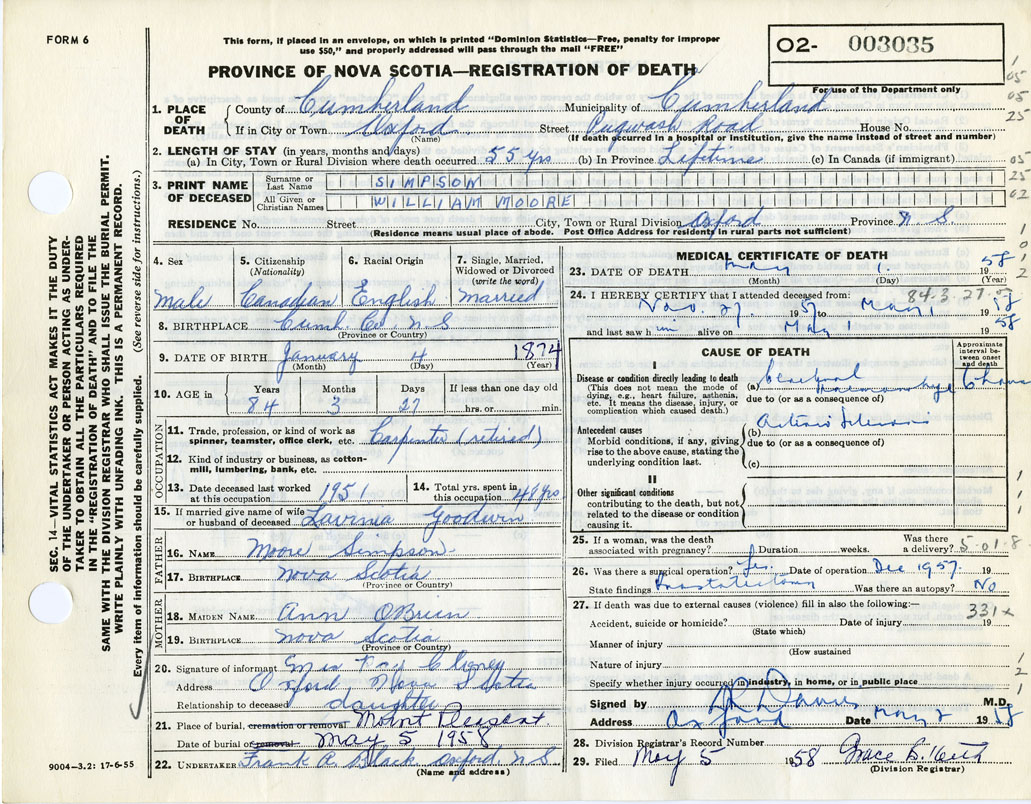 FORM 6
This form, if placed in an envelope, on which is printed "Dominion Statistics—Free, penalty for improper
use $50," and properly addressed will pass through the mail "FREE"
O2- 003035
For use of the Department only
PROVINCE OF NOVA SCOTIA—REGISTRATION OF DEATH
1. PLACE OF DEATH County of Cumberland Municipality of Cumberland
If in City or Town Oxford Street Pugwash Road House No.
(Name) (If death occurred in a hospital or institution, give the name instead of street and number)
2. LENGTH OF STAY (in years, months and days)
(a) In City, Town or Rural Division where death occurred 55 yrs (b) In Province Lifetime (c) In Canada (if immigrant)
3. PRINT NAME OF DECEASED Surname or Last Name SIMPSON
All Given or Christian Names WILLIAM MOORE
RESIDENCE No. Street City, Town or Rural Division Oxford Province N S
(Residence means usual place of abode. Post Office Address for residents in rural parts not sufficient)
4. Sex 5. Citizenship (Nationality) 6. Racial Origin 7. Single, Married, Widowed or Divorced (write the word)
Male Canadian English Married
8. BIRTHPLACE Cumb. Co. N.S
(Province or Country)
9. DATE OF BIRTH January 4 1874
(Month) (Day) (Year)
10. AGE in Years Months Days If less than one day old
84 3 27 hrs. or min.
OCCUPATION
11. Trade, profession, or kind of work as
spinner, teamster, office clerk, etc. Carpenter (retired)
12. Kind of industry or business, as cotton-
mill, lumbering, bank, etc.
13. Date deceased last worked at this occupation 1951 14. Total yrs. spent in this occupation 48 yrs
15. If married give name of wife
or husband of deceased Lavinia Goodwin
FATHER
16. NAME Moore Simpson
17. BIRTHPLACE Nova Scotia
(Province or Country)
MOTHER
18. MAIDEN NAME Ann O'Brien
19. BIRTHPLACE Nova Scotia
(Province or Country)
20. Signature of informant Mrs Fay
Address Oxford Nova Scotia
Relationship to deceased daughter
21. Place of burial, cremation or removal Mount Pleasant
Date of burial or removal May 5 1958
22. UNDERTAKER Frank A. Black Oxford, N.S
(Name and address)
9004—3.2: 17-6-55
MEDICAL CERTIFICATE OF DEATH
23. DATE OF DEATH May 1. 1958
(Month) (Day) (Year)
84-3-27
24. I HEREBY CERTIFY that I attended deceased from:
Nov. 27, 1957 to May 1 1958
and last saw him alive on May 1 1958
CAUSE OF DEATH
Approximate interval between onset and death
I
Disease or condition directly leading to death
(This does not mean the mode of
dying, e.g., heart failure, asthenia,
etc. It means the disease, injury, or
complication which caused death.)
(a) Cerebral Haemorrhage 6 hours
due to (or as a consequence of)
Antecedent causes
Morbid conditions, if any, giving
rise to the above cause, stating the
underlying condition last.
(b) Arterio Sclerosis
due to (or as a consequence of)
(c)
II
Other significant conditions
contributing to the death, but not
related to the disease or condition
causing it.
25. If a woman, was the death associated with pregnancy? Duration weeks. Was there a delivery?
5-01-8
26. Was there a surgical operation? Yes. Date of operation Dec 1957. 19
State findings Was there an autopsy? No
27. If death was due to external causes (violence) fill in also the following:—
331x
Accident, suicide or homicide? Date of injury 19
(State which)
Manner of injury
(How sustained
Nature of injury
Specify whether injury occurred in industry, in home, or in public place
Signed by M.D.
Address Oxford Date May 2 1958
28. Division Registrar's Record Number
29. Filed May 5 1958 Grace B.
(Division Registrar)
SEC. 14—VITAL STATISTICS ACT MAKES IT THE DUTY
OF THE UNDERTAKER OR PERSON ACTING AS UNDER-
TAKER TO OBTAIN ALL THE PARTICULARS REQUIRED
IN THE "REGISTRATION OF DEATH" AND TO FILE THE
SAME WITH THE DIVISION REGISTRAR WHO SHALL ISSUE THE BURIAL PERMIT.
WRITE PLAINLY WITH UNFADING INK. THIS IS A PERMANENT RECORD.
Every item of information should be carefully supplied. (See reverse side for instructions.)
1
05
05
25
05
25
02
1
0
1
2
1
1
1
1
2
1